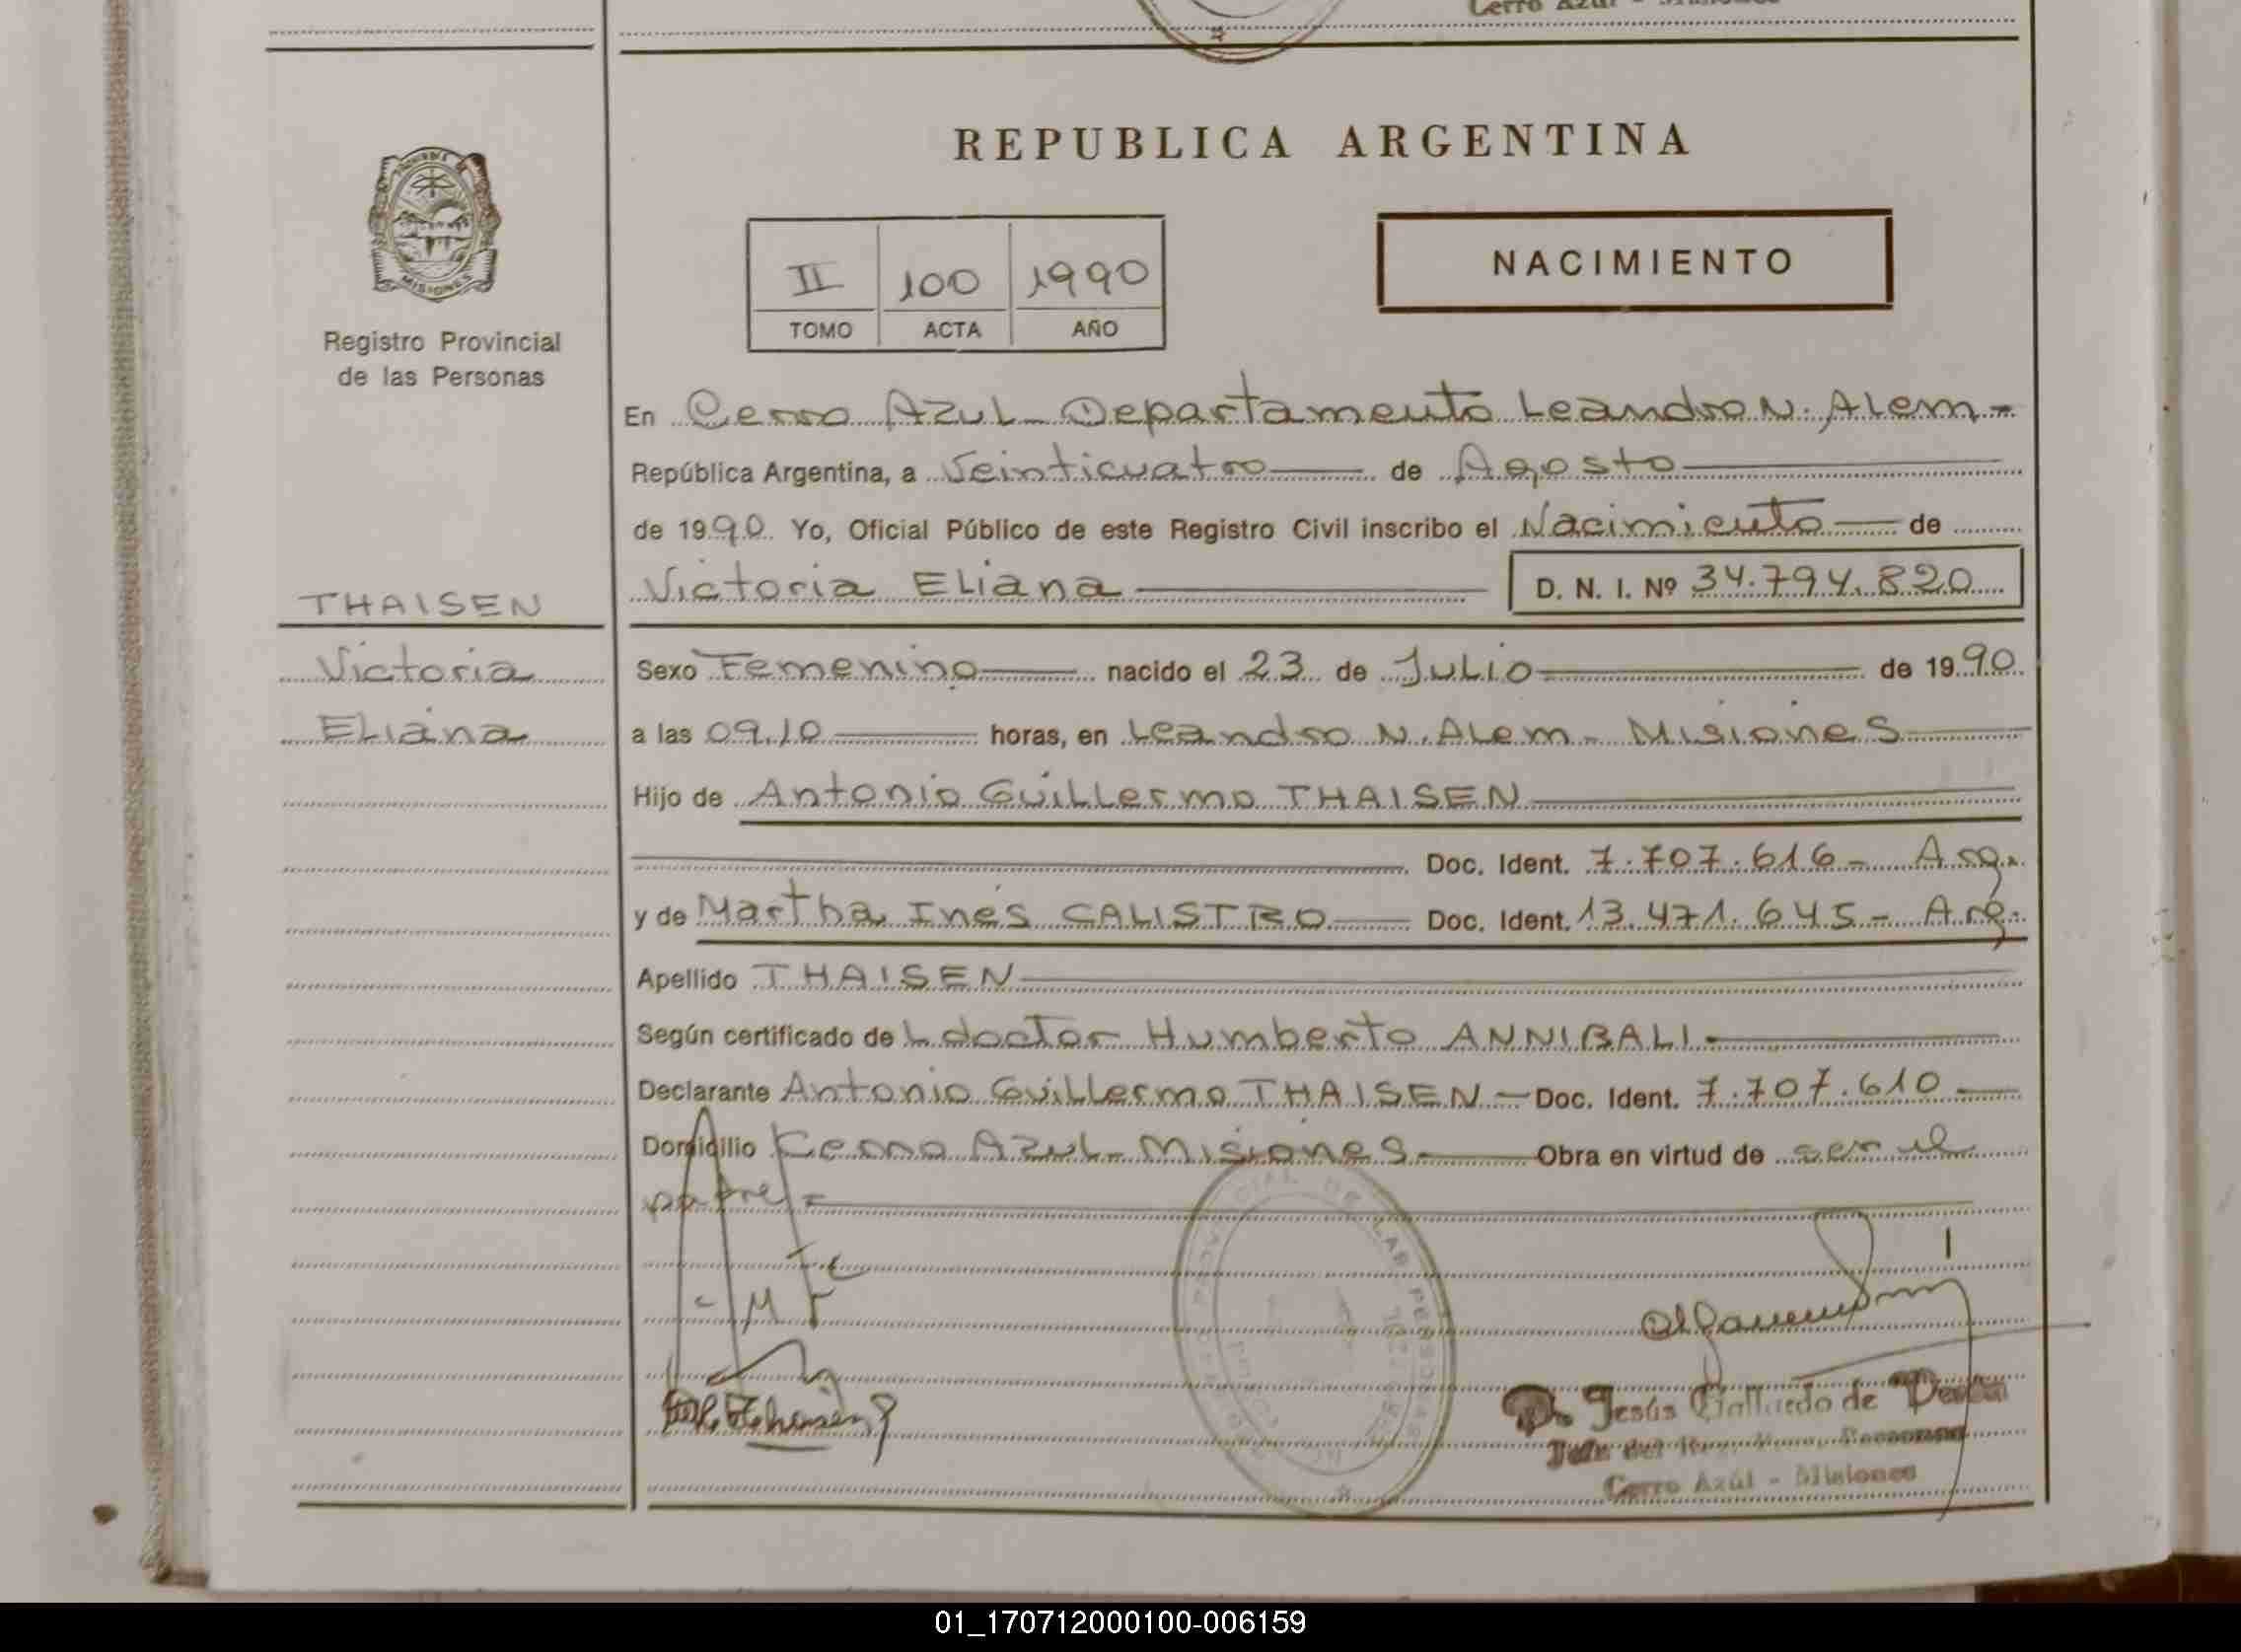 Cerro Azul - Misiones
REPUBLICA ARGENTINA
MISIONES
Registro Provincial
de las Personas
II 100 1990
TOMO ACTA AÑO
NACIMIENTO
En Cerro Azul - Departamento Leandro N. Alem -
República Argentina, a Veinticuatro de Agosto
de 1990 Yo, Oficial Público de este Registro Civil inscribo el Nacimiento de
THAISEN
Victoria Eliana D. N. I. Nº 34.794.820
Victoria
Sexo Femenino nacido el 23 de Julio de 1990
Eliana
a las 09.10 horas, en Leandro N. Alem - Misiones
Hijo de Antonio Guillermo THAISEN
Doc. Ident. 7.707.616 - Arg.
y de Martha Inés CALISTRO Doc. Ident. 13.471.645 - Arg.
Apellido THAISEN
Según certificado de L doctor Humberto ANNIBALI -
Declarante Antonio Guillermo THAISEN - Doc. Ident. 7.707.610
Domicilio Cerro Azul - Misiones Obra en virtud de ser el
padre =
Jesús Gallardo de
Cerro Azúl - Misiones
01_170712000100-006159